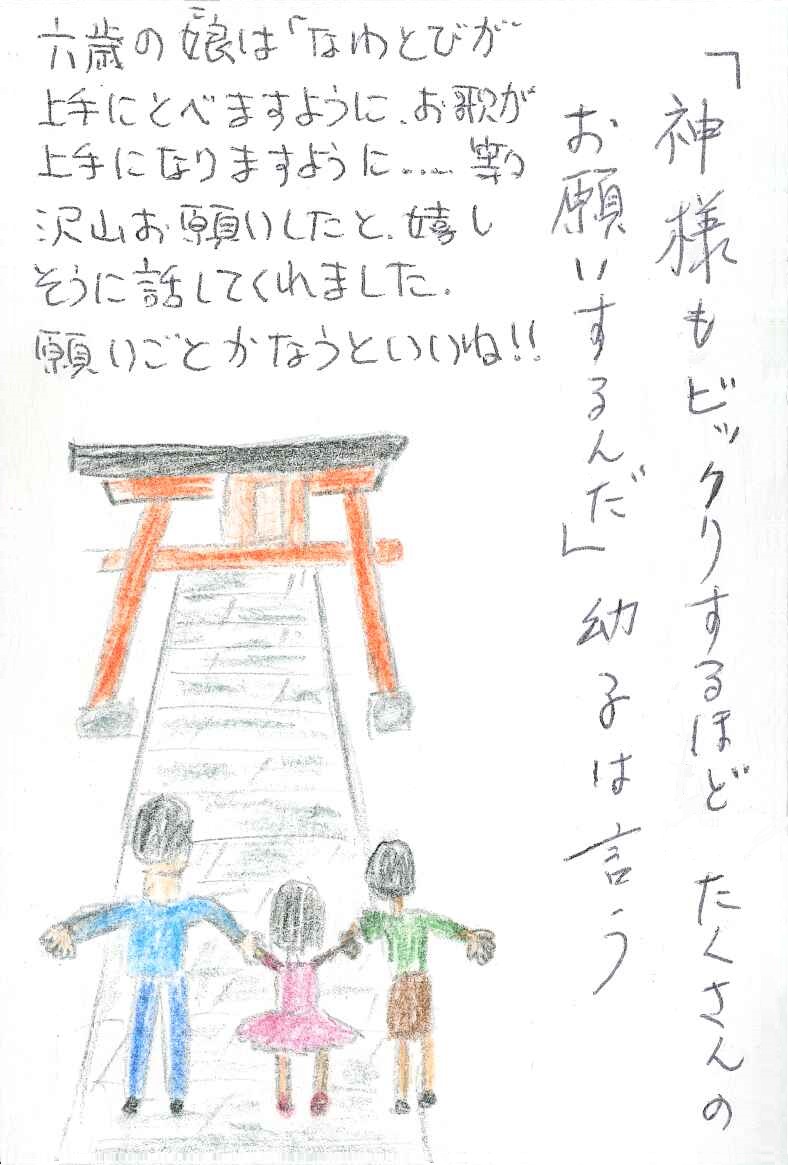 「神様もビックリするほど たくさんの
お願いするんだ」幼子は言う
六歳の娘は「なわとびが
上手にとべますように、お歌が
上手になりますように……
沢山お願いしたと、嬉し
そうに話してくれました.
願いごとかなうといいね!!